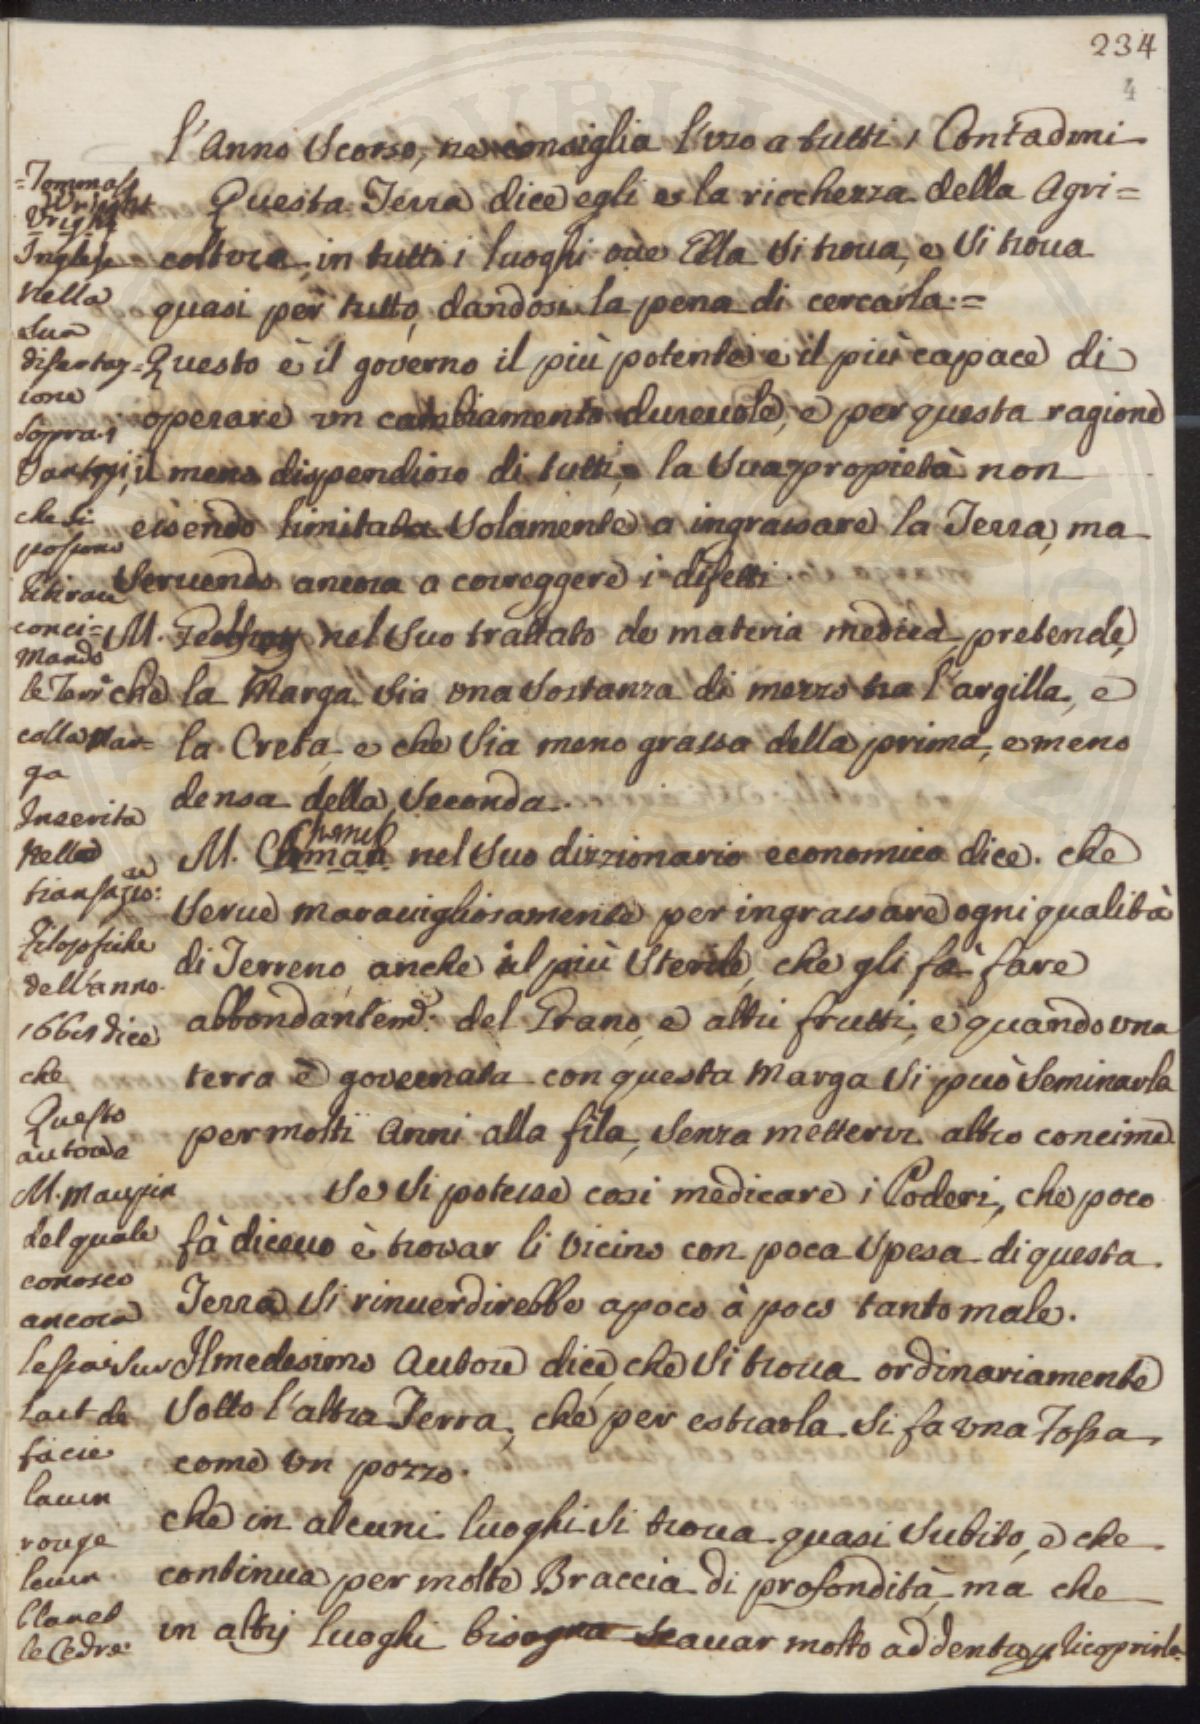 234
4
l'Anno Scorso, ne consiglia l'uso a tutti i Contadini
Questa Terra dice egli e la ricchezza della Agri=
coltura in tutti i luoghi oue Ella Si troua, e Si troua
quasi per tutto, dandosi la pena di cercarla.=
Questo è il governo il più potente e il più capace di
operare un cambiamento dureuole, e per questa ragione
il meno dispendioso di tutti, la Sua propietà non
essendo limitata Solamente a ingrassare la Terra, ma
Seruendo ancora a correggere i difetti.
M. nel Suo trattato de materia medica, pretende,
che la Marga Sia una Sostanza di mezzo tra l'argilla, e
la Creta, e che Sia meno grassa della prima, e meno
densa della Seconda.
Chomel
M. nel Suo dizzionario economico dice. che
Serue marauigliosamente per ingrassare ogni qualità
di Terreno, anche il più Sterile, che gli fà fare
abbondantem.e del Grano, e altri frutti, e quando una
terra è gouernata con questa Marga Si può Seminarla
per molti Anni alla fila, Senza metterui altro concime
Se Si potesse cosi medicare i Poderi, che poco
fà diceuo è trouar li Vicino con poca Spesa di questa
Terra Si rinuerdirebbe a poco à poco tanto male.
Il medesimo Autore dice, che Si troua ordinariamente
Sotto l'altra Terra, che per estrarla Si fa una Fossa
come un pozzo.
che in alcuni luoghi Si troua quasi Subito, e che
continua per molte Braccia di profondità, ma che
in altrj luoghi bisogna scauar molto addentro p licoprirla.
=Tommaso
Wright
Inglese
Nella
Sua
disertaz=
ione
Sopra i
Vantagi,
che si
possono
titirare
conci=
mando
le Terre
colla Mar=
ga
Inserita
Nelle
transazio:
Filosofiche
dell'anno
dice
che
Questo
autore
M. Maupin
del quale
conosco
ancora
Sur
l'art de
facie
lauin
rouge
leuin
Claret
le Cedre